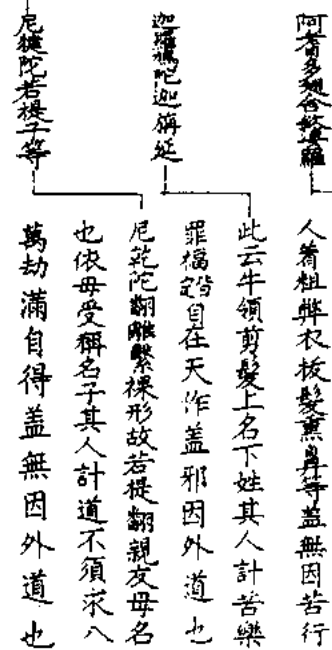 阿耆多翅舍欽婆羅
人着粗弊衣拔髮熏鼻等盖無因苦行
迦羅鳩陀迦旃延
此云牛領剪髮上名下姓其人計苦樂
罪福皆自在天作盖邪因外道也
尼揵陀若提子等
尼乾陀翻離繫裸形故若提翻親友母名
也依母受稱名子其人計道不須求八
萬劫滿自得盖無因外道也